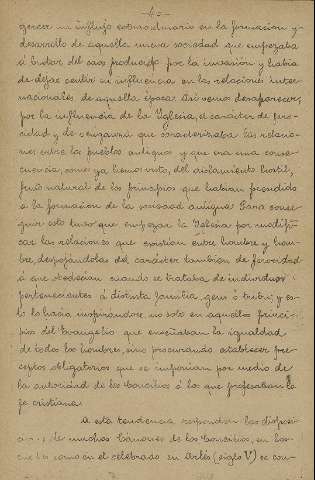 gercer un influjo extraordinario en la formacion y
desarrollo de aquella nueva sociedad que empezaba
á brotar del caos producido por la invasión y habia
de dejar sentir su influencia en las relaciones inter-
nacionales de aquella época. Asi vemos desaparecer,
por la influencia de la Yglesia, el carácter de fero-
cidad y de venganza que caracterizaba las relacio-
nes entre los pueblos antiguos y que era una conse-
cuencia, como ya hemos visto, del aislamiento hostil,
fruto natural de los principios que habian presidido
á la formación de la sociedad antigua. Para conse-
guir esto tuvo que empezar la Yglesia por modifi-
car las relaciones que existian entre hombre y hom-
bre, despojándolas del carácter tambien de ferocidad
á que obedecian cuando se trataba de individuos
pertenecientes á distinta familia, gens ó tribu; y es-
to lo hacia inspirándose no solo en aquellos princi-
pios del Evangelio que enseñaban la igualdad
de todos los hombres, sino procurando establecer pre-
ceptos obligatorios que se imponian por medio de
la autoridad de los Concilios á los que profesaban la
fe cristiana.
A esta tendencia respondian las disposi-
de muchos Canones de los Concilios, en los
que los como en el celebrado en Arlés (siglo V) se con-